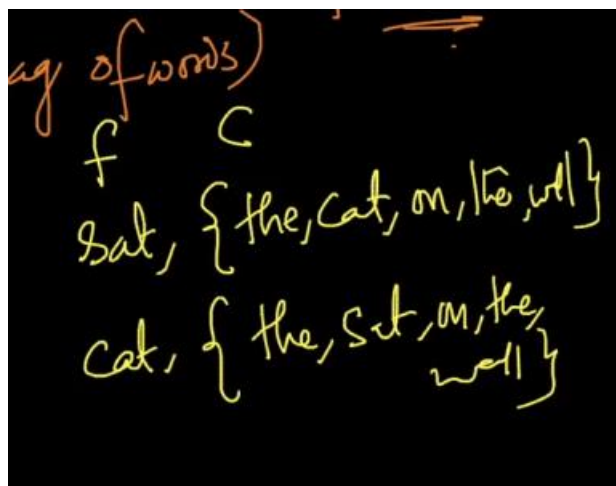 ag of words)
f C
sat, {the, cat, on, the, wll}
cat, { the, sat, on, the,
well}